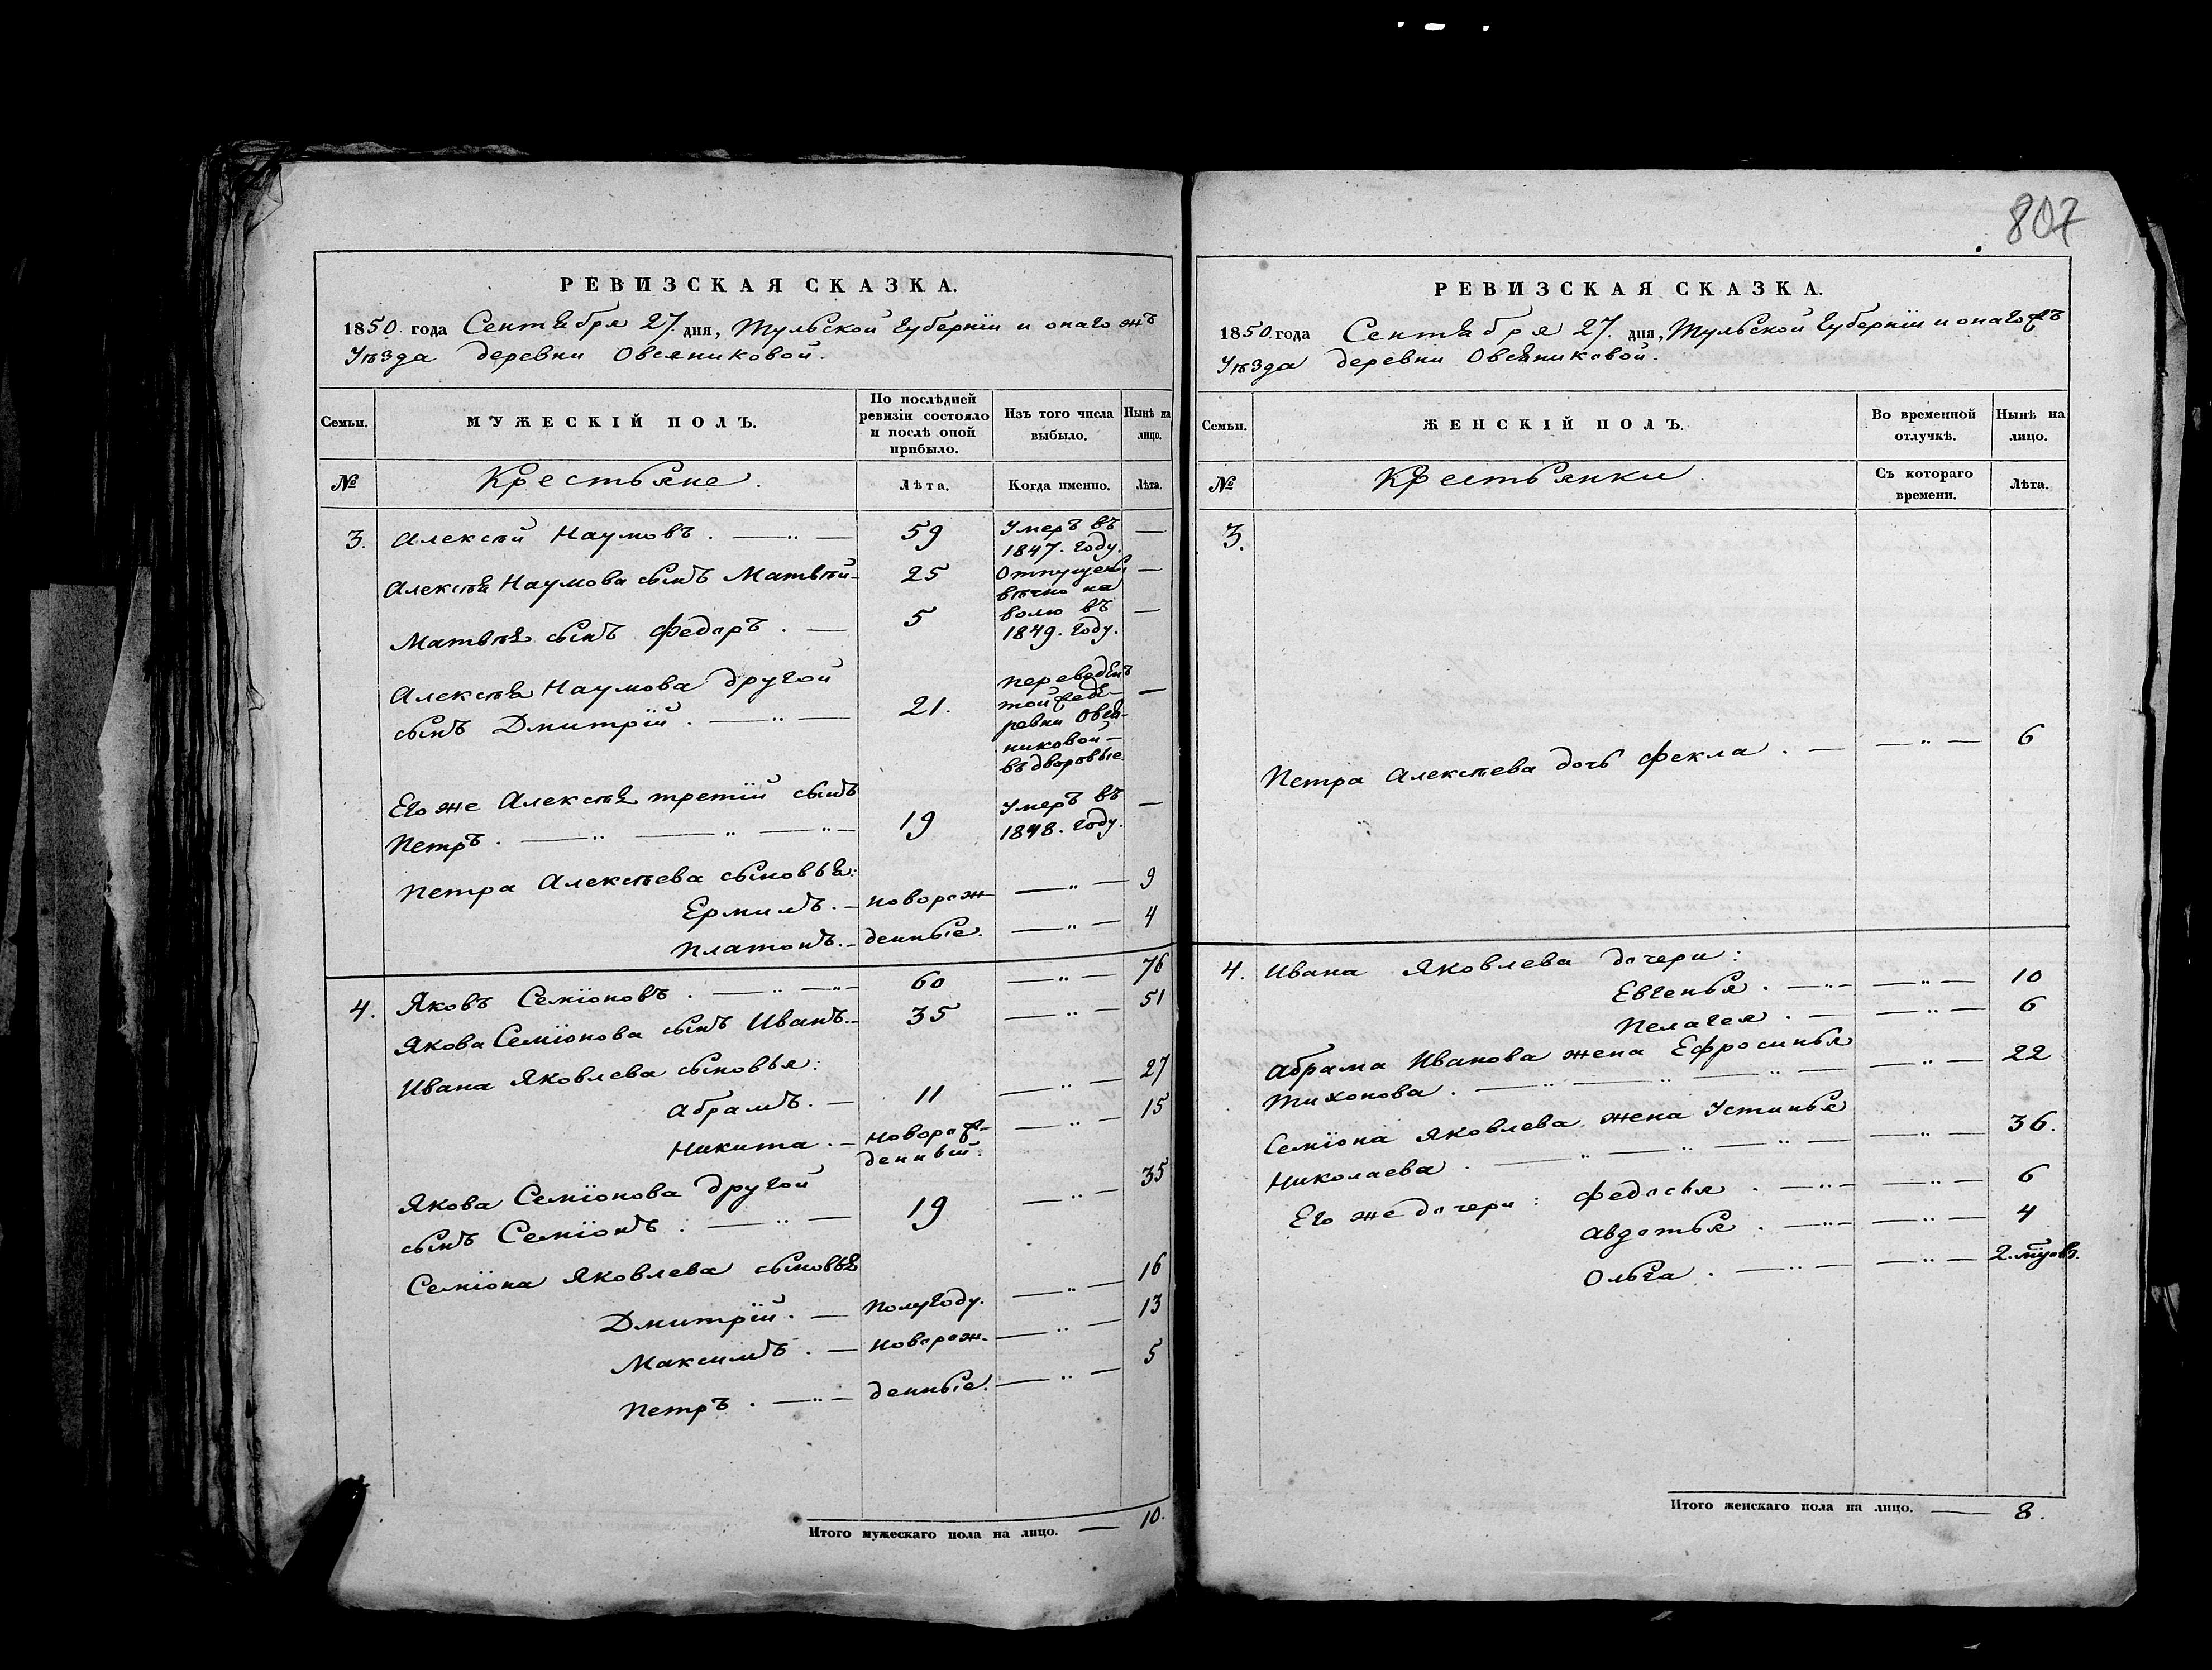 807
РЕВИЗСКАЯ СКАЗКА.
1850. года Сентября 27. дня, Тульской губерніи и онаго жъ
Уѣзда деревни Овсяниковой.
Семьи.
МУЖЕСКІЙ ПОЛЪ.
По послѣдней ревизіи состояло и послѣ оной прибыло.
Изъ того числа выбыло.
Нынѣ на лицо.
№
Крестьяне.
Лѣта.
Когда именно.
Лѣта.
3. Алексѣй Наумовъ. — „ — 59 Умеръ въ 1847. году. —
Алексѣя Наумова сынъ Матвѣй — 25 Отпущены —
вѣчно на
Матвѣя сынъ Федоръ. — 5 волю въ —
1849. году.
Алексѣя Наумова другой
сынъ Дмитрій. — „ — 21. переведенъ —
той же де-
ревни Овся-
никовой —
въ дворовые.
Его же Алексѣя третій сынъ
Петръ. — „ — „ — „ — 19 Умеръ въ 1848. году. —
Петра Алексѣева сыновья:
Ермилъ. — новорож- — „ — 9
Платонъ. — денные. — „ — 4
4. Яковъ Семіоновъ. — „ — „ — 60 — „ — 76
Якова Семіонова сынъ Иванъ. — 35 — „ — 51
Ивана Яковлева сыновья:
Абрамъ. — 11 — „ — 27
Никита. — Новорож- — „ — 15
денный.
Якова Семіонова другой
сынъ Семіонъ. — „ — 19 — „ — 35
Семіона Яковлева сыновья
Дмитрій. — Полугоду. — „ — 16
Максимъ. — Новорож- — „ — 13
Петръ. — „ — денные. — „ — 5
Итого мужескаго пола на лицо. — 10.
РЕВИЗСКАЯ СКАЗКА.
1850. года Сентября 27. дня, Тульской губерніи и онаго жъ
Уѣзда деревни Овсяниковой.
Семьи.
ЖЕНСКІЙ ПОЛЪ.
Во временной отлучкѣ.
Нынѣ на лицо.
№
Крестьянки.
Съ котораго времени.
Лѣта.
3.
Петра Алексѣева дочь Фекла. — — „ — 6
4. Ивана Яковлева дочери:
Евгенья. — „ — — „ — 10
Пелагея. — — „ — 6
Абрама Иванова жена Ефросинья
Тихонова. — „ — „ — „ — — „ — 22
Семіона Яковлева жена Устинья
Николаева. — „ — „ — „ — — „ — 36.
Его же дочери: Федосья. — „ — — „ — 6
Авдотья. — „ — — „ — 4
Ольга. — „ — — „ — 2. мѣсяцовъ.
Итого женскаго пола на лицо. — 8.